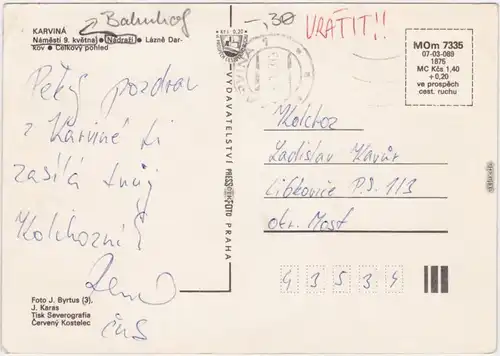 Bahnhof
KARVINÁ
Náměstí 9. května • Nádraží • Lázně Dar-
kov • Celkový pohled
Pěkný pozdrav
z Karviné ti
zasílá tvůj
Kolchozník
ČUS
Foto J. Byrtus (3),
J. Karas
Tisk Severografia
Červený Kostelec
VYDAVATELSTVÍ PRESSFOTO PRAHA
-,30
VRÁTIT!!
KČS 0,20
MOm 7335
07-03-089
1875
MC Kčs 1,40
+0,20
ve prospěch
cest. ruchu
Kolchoz
Ladislav Kavúr
Libkovice P.S. 113
okr. Most
43534